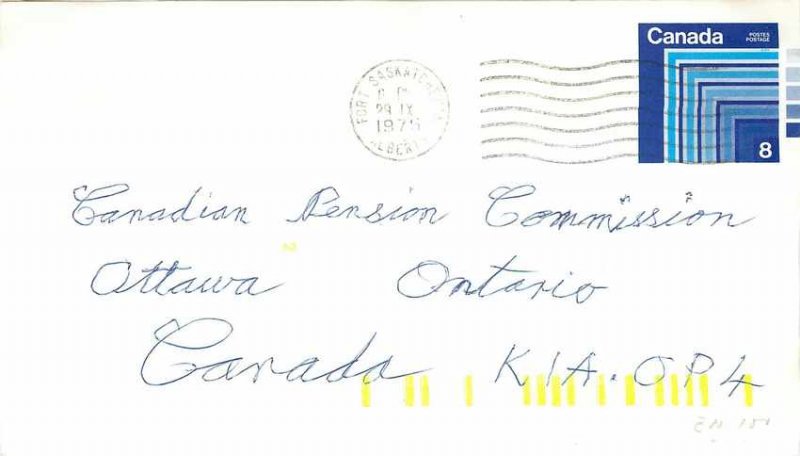 Canada
POSTES
POSTAGE
8
FORT SASKATCHEWAN
29 IX
1975
ALBERTA
Canadian Pension Commission
Ottawa Ontario
Canada K1A.OP4